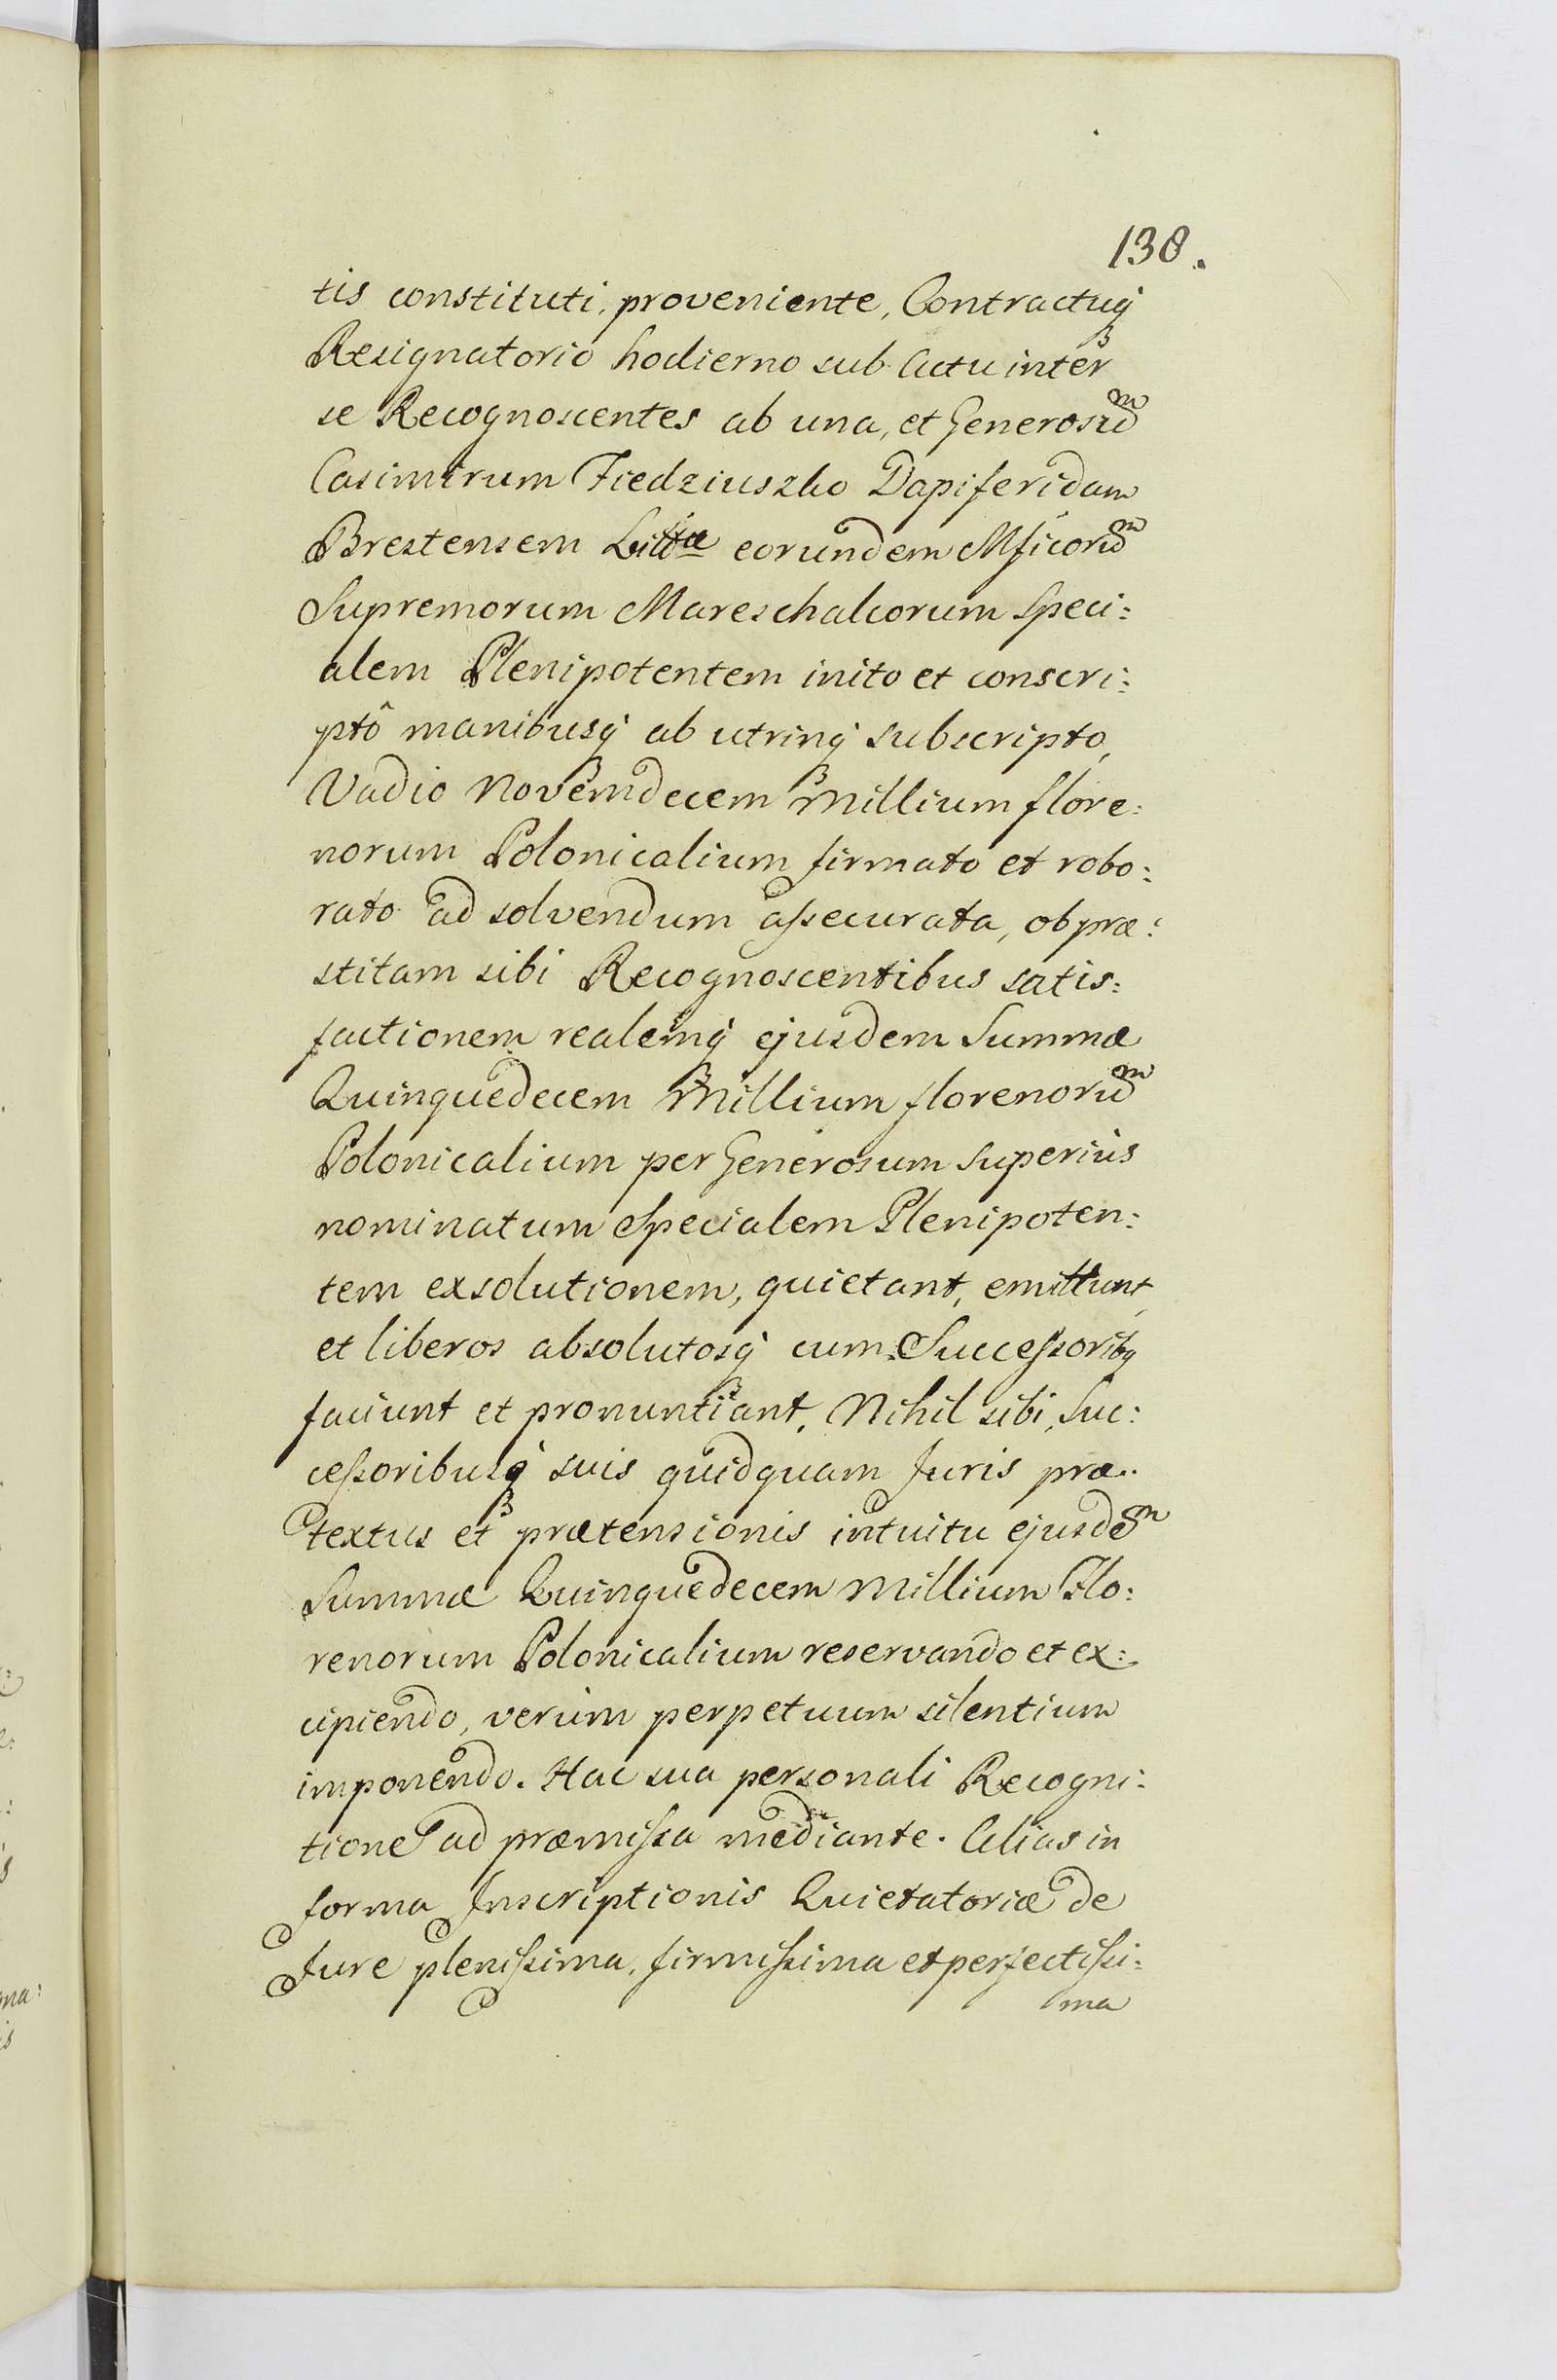 138.
tis constituti, proveniente, Contractuq́
Resignatorio hodierno sub Actu inter
se Recognoscentes ab una, et Generosuᵐ
Casimirum Fiedziuszko Dapiferidam
Brestensem Littᵃᵉ eorundem Mficoruᵐ
Supremorum Mareschalcorum Speci:
alem Plenipotentem inito et conscri:
ptô manibusq́ ab utrinq́ subscripto,
Vadio Novemdecem Millium flore:
norum Polonicalium firmato et robo:
rato ad solvendum aſsecurata, ob præ:
stitam sibi Recognoscentibus satis:
factionem realemq́ ejusdem Summæ
Quinquedecem Millium florenoruᵐ
Polonicalium per Generosum Superius
nominatum Specialem Plenipoten:
tem exsolutionem, quietant, emittunt,
et liberos absolutosq́ cum Succeſsoribq
faciunt et pronuntiant, Nihil sibi, Suc:
ceſsoribusq́ suis quidquam Juris præ:
textus et prætensionis intuitu ejusdeᵐ
Summæ Quinquedecem Millium Flo:
renorum Polonicalium reservando et ex:
cipiendo, verùm perpetuum silentium
imponendo. Hac sua personali Recogni:
tione ad præmiſsa mediante. Alias in
forma Inscriptionis Quietatoriæ de
Jure pleniſsima, firmiſsima et perfectiſsi:
ma